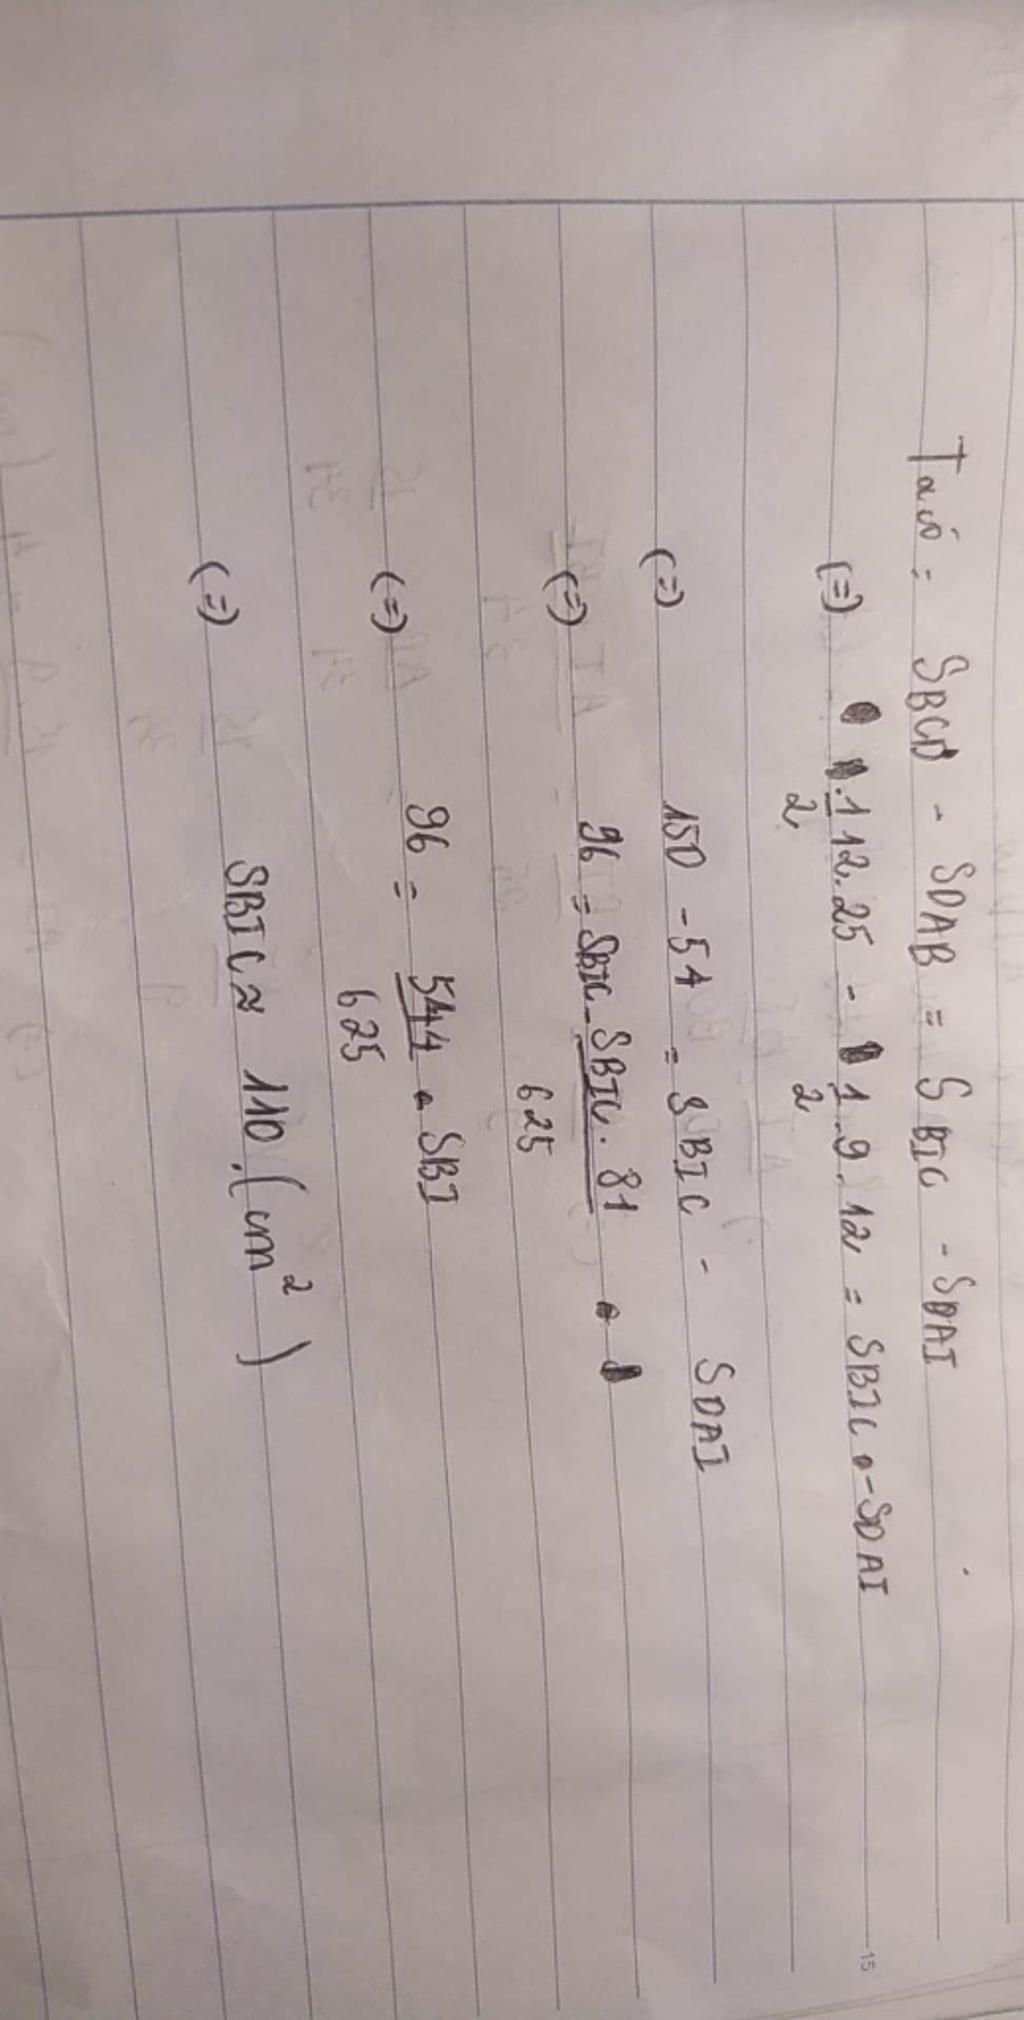 Ta có : SBCD - SDAB = SBIC - SDAI
(=) 1/2.12.25 - 1/2.9.12 = SBIC - SDAI
(=) 150 - 54 = SBIC - SDAI
(=) 96 = SBIC - SBIC.81/625
(=) 96 = 544/625 . SBI
(=) SBIC ≈ 110 (cm²)
15